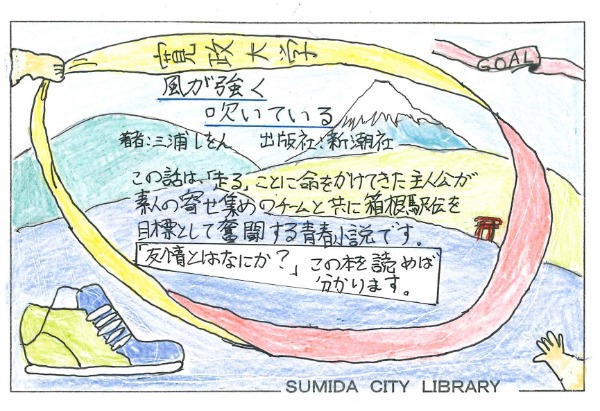 寛政大学
GOAL
風が強く
吹いている
著者:三浦しをん 出版社:新潮社
この話は、「走る」ことに命をかけてきた主人公が
素人の寄せ集めのチームと共に箱根駅伝を
目標として奮闘する青春小説です。
「友情とはなにか?」この本を読めば
分かります。
SUMIDA CITY LIBRARY